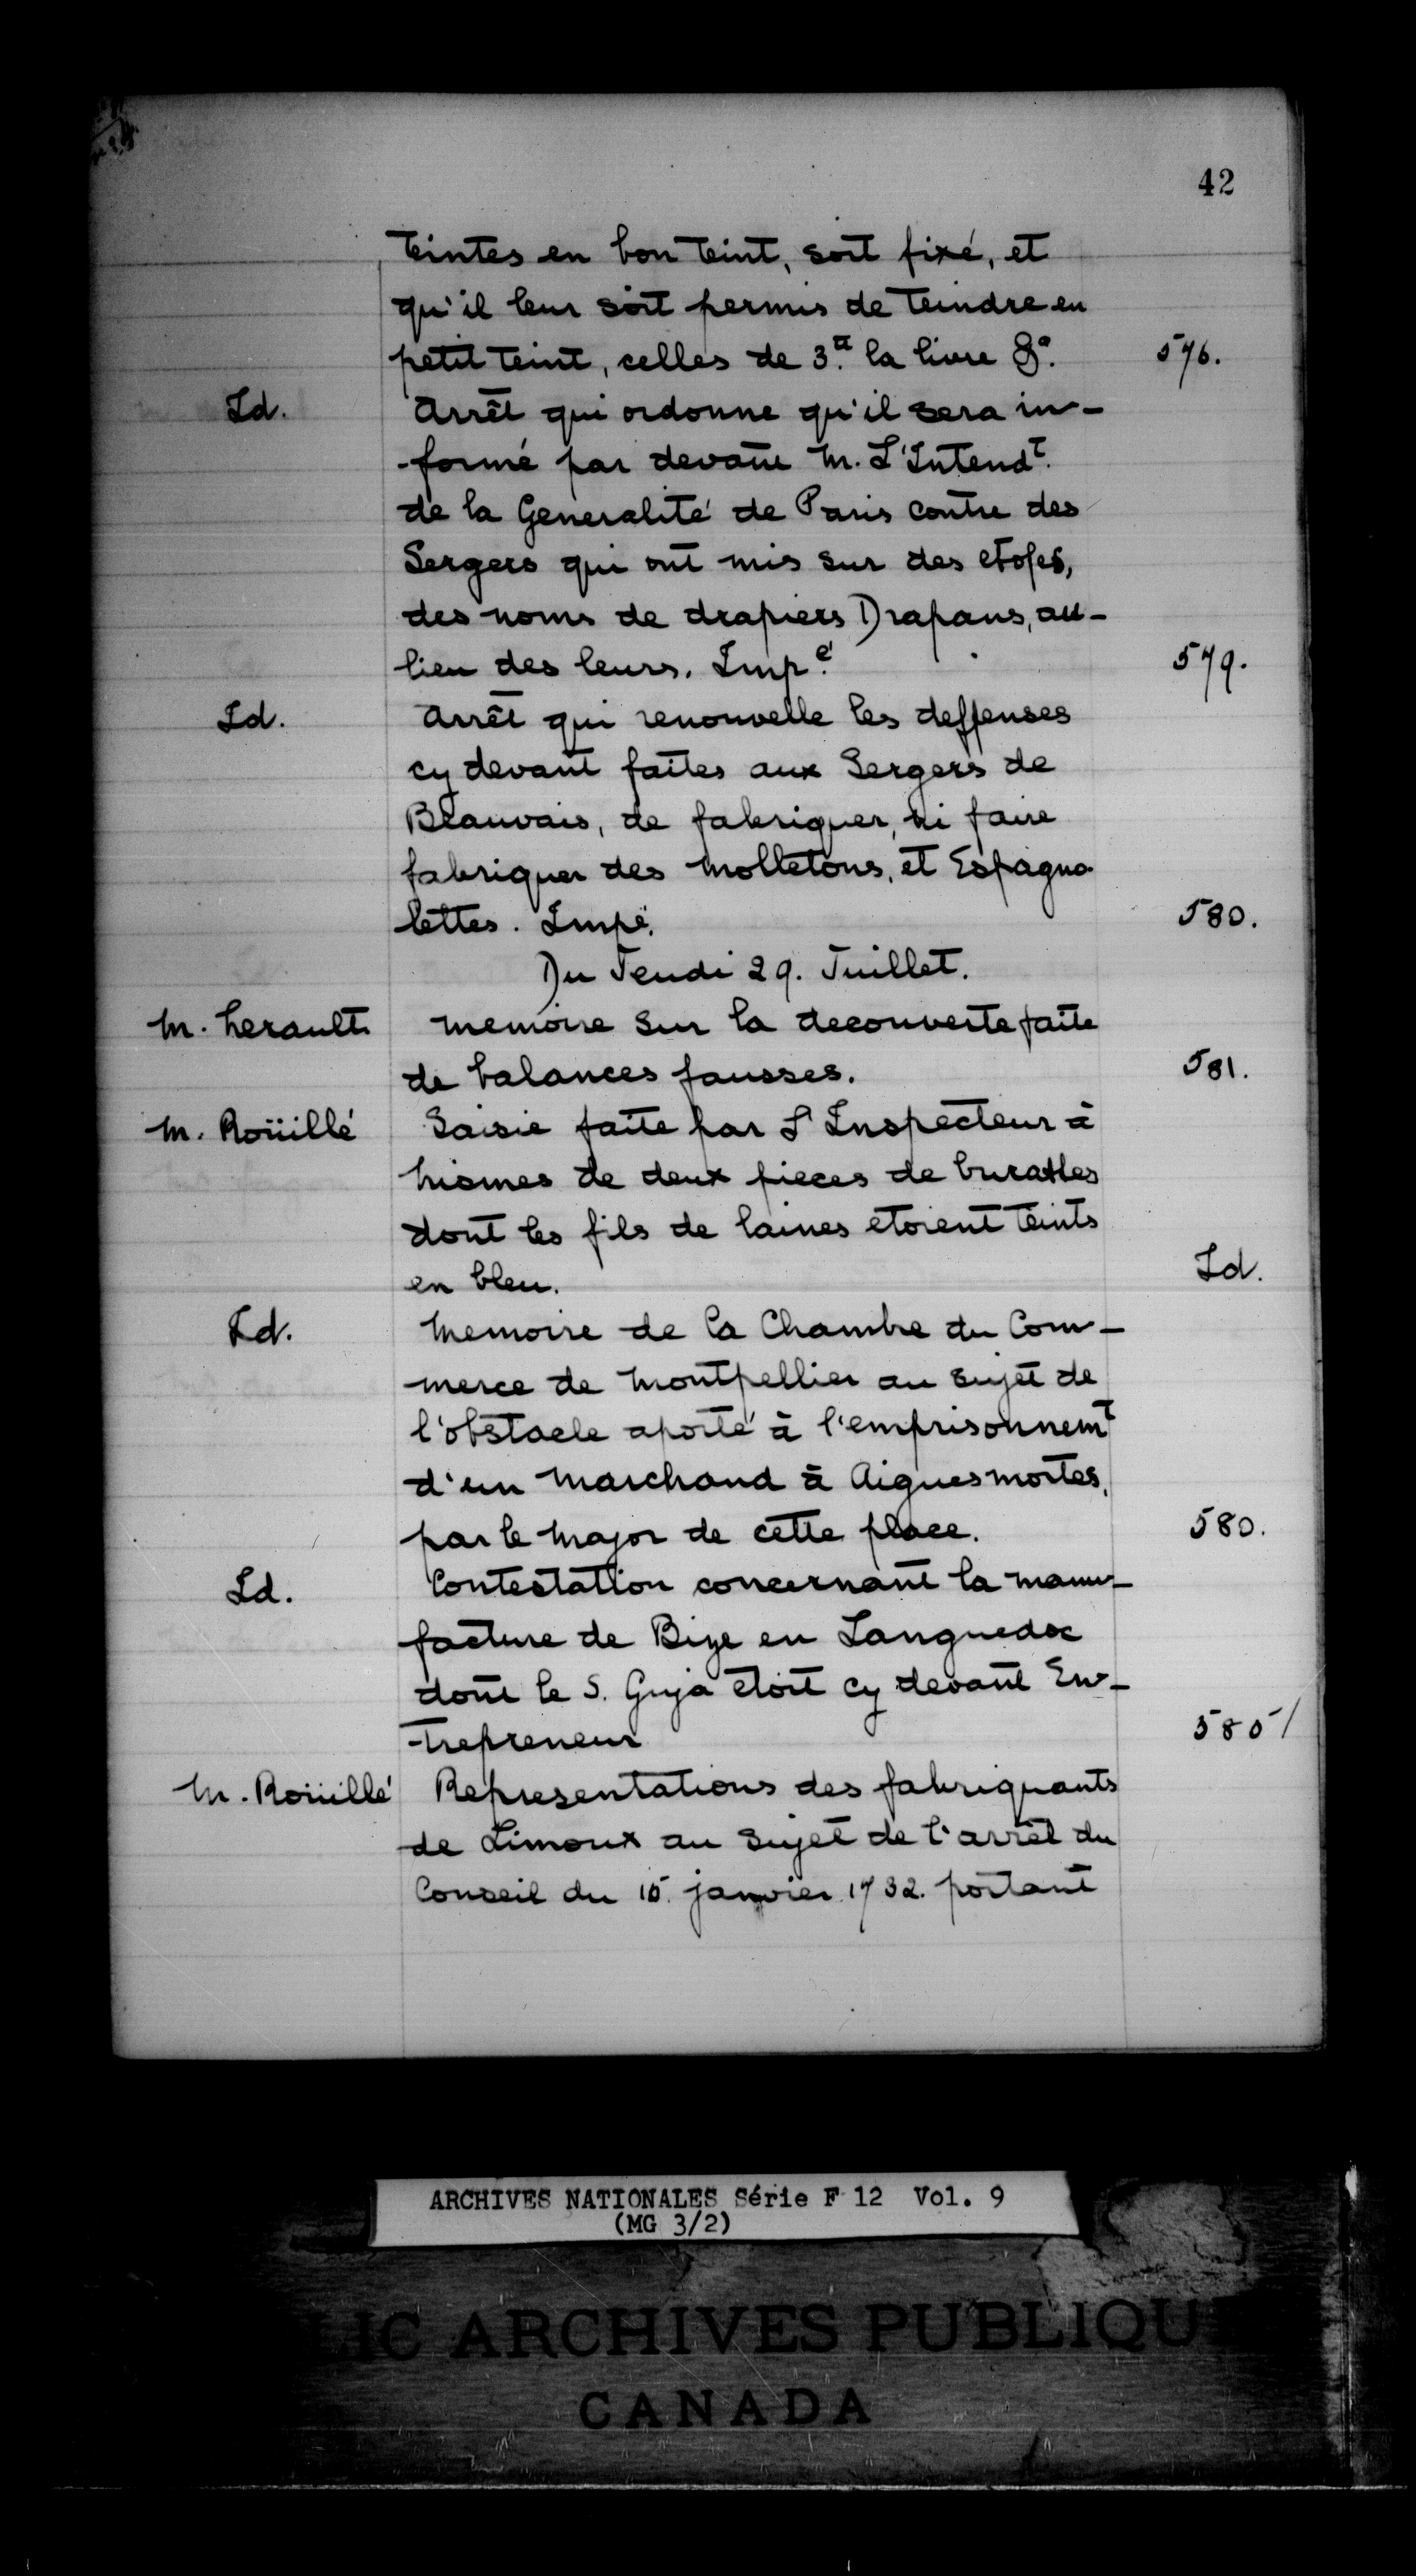 42
teintes en bon teint, soit fixé, et
qu'il leur soit permis de teindre en
petit teint, celles de 3.# la livre &a. 576.
Id. Arrêt qui ordonne qu'il sera in-
-formé par devant M. L'Intendt.
de la Generalité de Paris contre des
Sergers qui ont mis sur des etofes,
des noms de drapiers Drapans, au-
lieu des leurs. Impé. 579.
Id. Arrêt qui renouvelle les deffenses
cy devant faites aux Sergers de
Beauvais, de fabriquer, ni faire
fabriquer des Molletons, et Espagno-
lettes. Impé. 580.
Du Jeudi 29. Juillet.
M. herault memoire sur la decouverte faite
de balances fausses. 581.
M. Roüillé Saisie faite par L'Inspecteur à
Nismes de deux pieces de burattes
dont les fils de laines etoient teints
en bleu. Id.
Id. Memoire de la Chambre du Com-
merce de Montpellier au sujet de
l'obstacle aporté à l'emprisonnemt
d'un Marchand à Aiguesmortes,
par le Major de cette place. 580.
Id. Contestation concernant la manu-
facture de Bize en Languedoc
dont le S. Guja etoit cy devant En-
-trepreneur 585/
M. Roüillé Representations des fabriquants
de Limoux au sujet de l'arrêt du
Conseil du 15. janvier 1732. portant
ARCHIVES NATIONALES Série F 12 Vol. 9
(MG 3/2)
LIC ARCHIVES PUBLIQU
CANADA